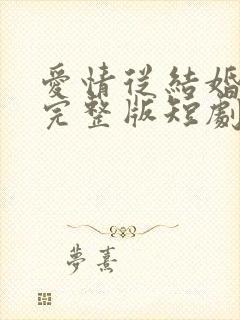 愛情從結婚
完整版短劇
夢熹